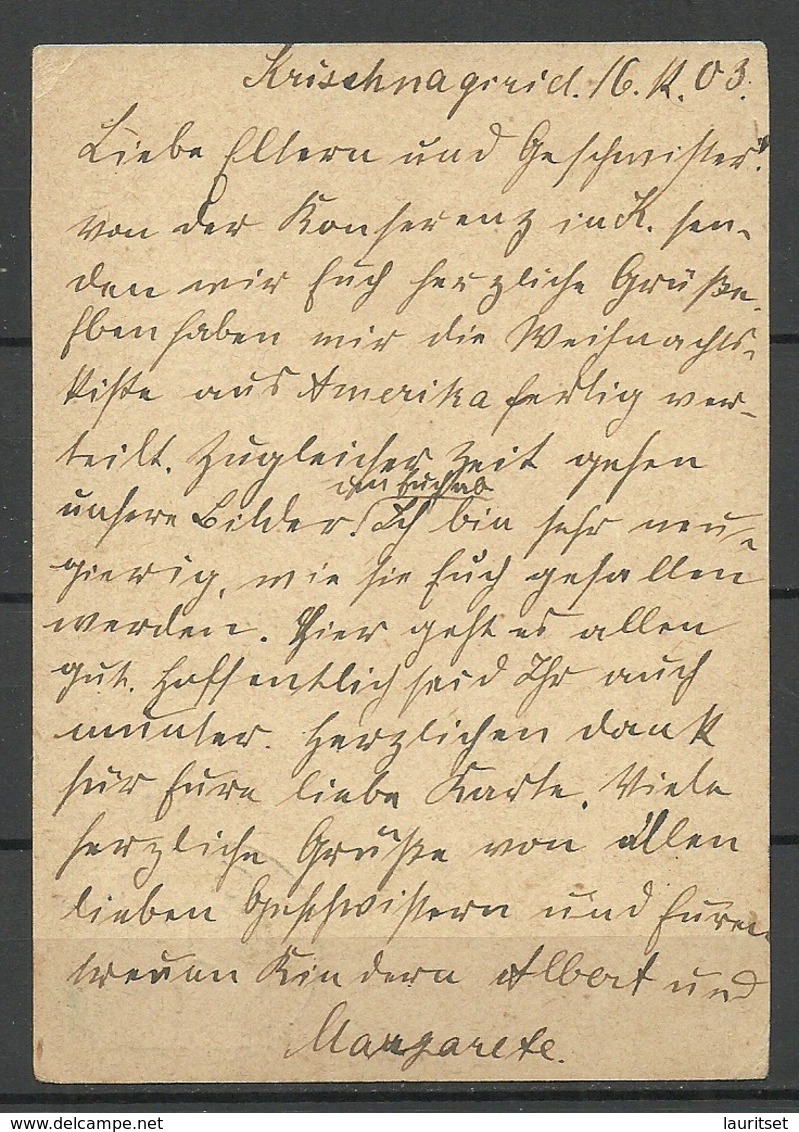 Krischnagirid. 16. 12. 03.
Liebe Eltern und Geschwister!
von der Konferenz in K. sen-
den wir Euch herzliche Grüße.
Eben haben wir die Weihnachts-
kiste aus Amerika fertig ver-
teilt. Zugleicher Zeit gehen
an Euch ab
unsere Bilder! Ich bin sehr neu-
gierig, wie sie Euch gefallen
werden. Hier geht es allen
gut. Hoffentlich seid Ihr auch
munter. Herzlichen dank
für Eure liebe Karte. Viele
herzliche Grüße von allen
lieben Geschwistern und Euren
treuen Kindern Albert und
Margarete.
lauritset